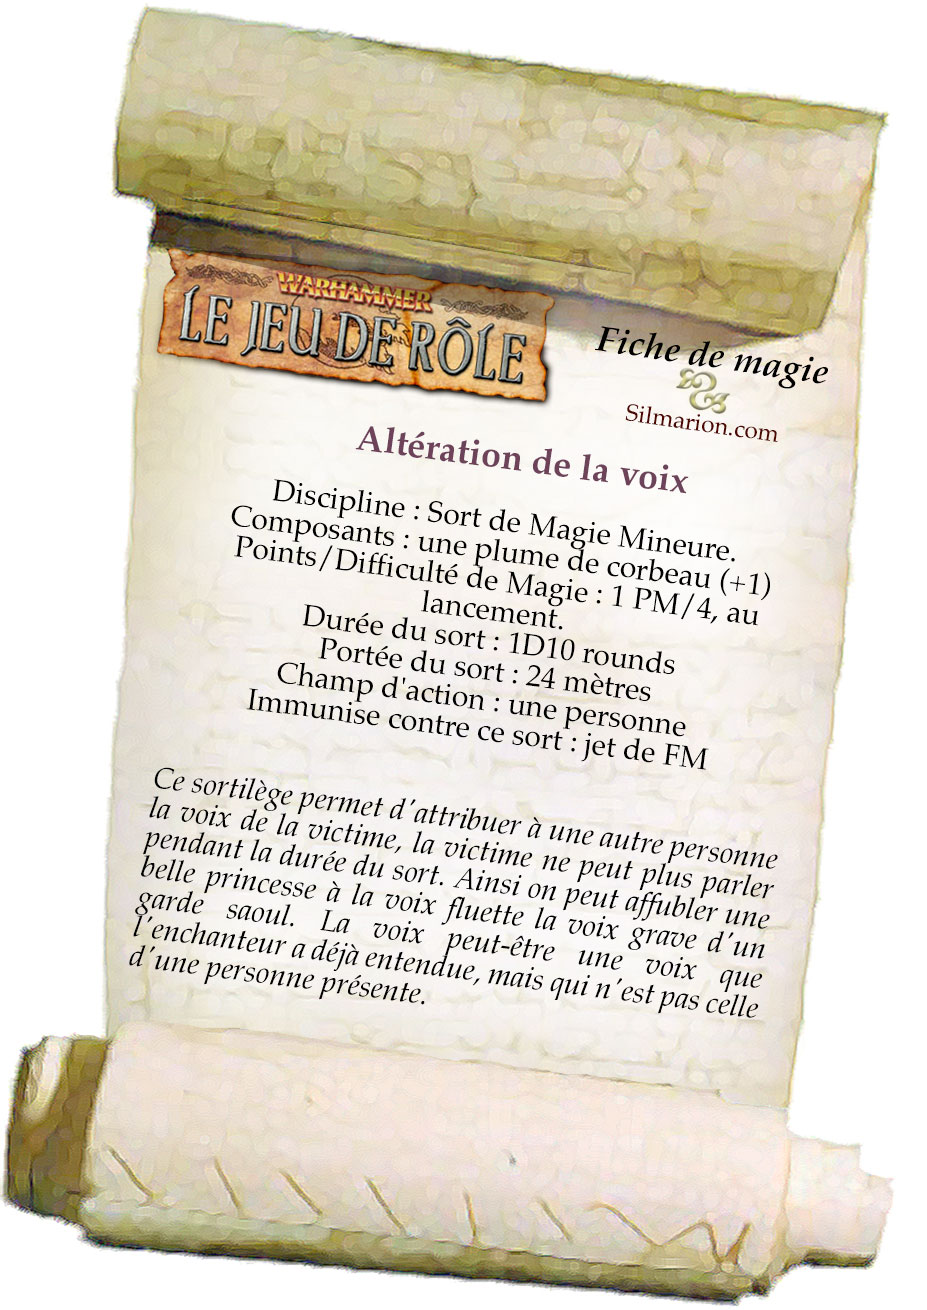 WARHAMMER
LE JEU DE RÔLE
Fiche de magie
Silmarion.com
Altération de la voix
Discipline : Sort de Magie Mineure.
Composants : une plume de corbeau (+1)
Points/Difficulté de Magie : 1 PM/4, au
lancement.
Durée du sort : 1D10 rounds
Portée du sort : 24 mètres
Champ d'action : une personne
Immunise contre ce sort : jet de FM
Ce sortilège permet d´attribuer à une autre personne
la voix de la victime, la victime ne peut plus parler
pendant la durée du sort. Ainsi on peut affubler une
belle princesse à la voix fluette la voix grave d´un
garde saoul. La voix peut-être une voix que
l´enchanteur a déjà entendue, mais qui n´est pas celle
d´une personne présente.